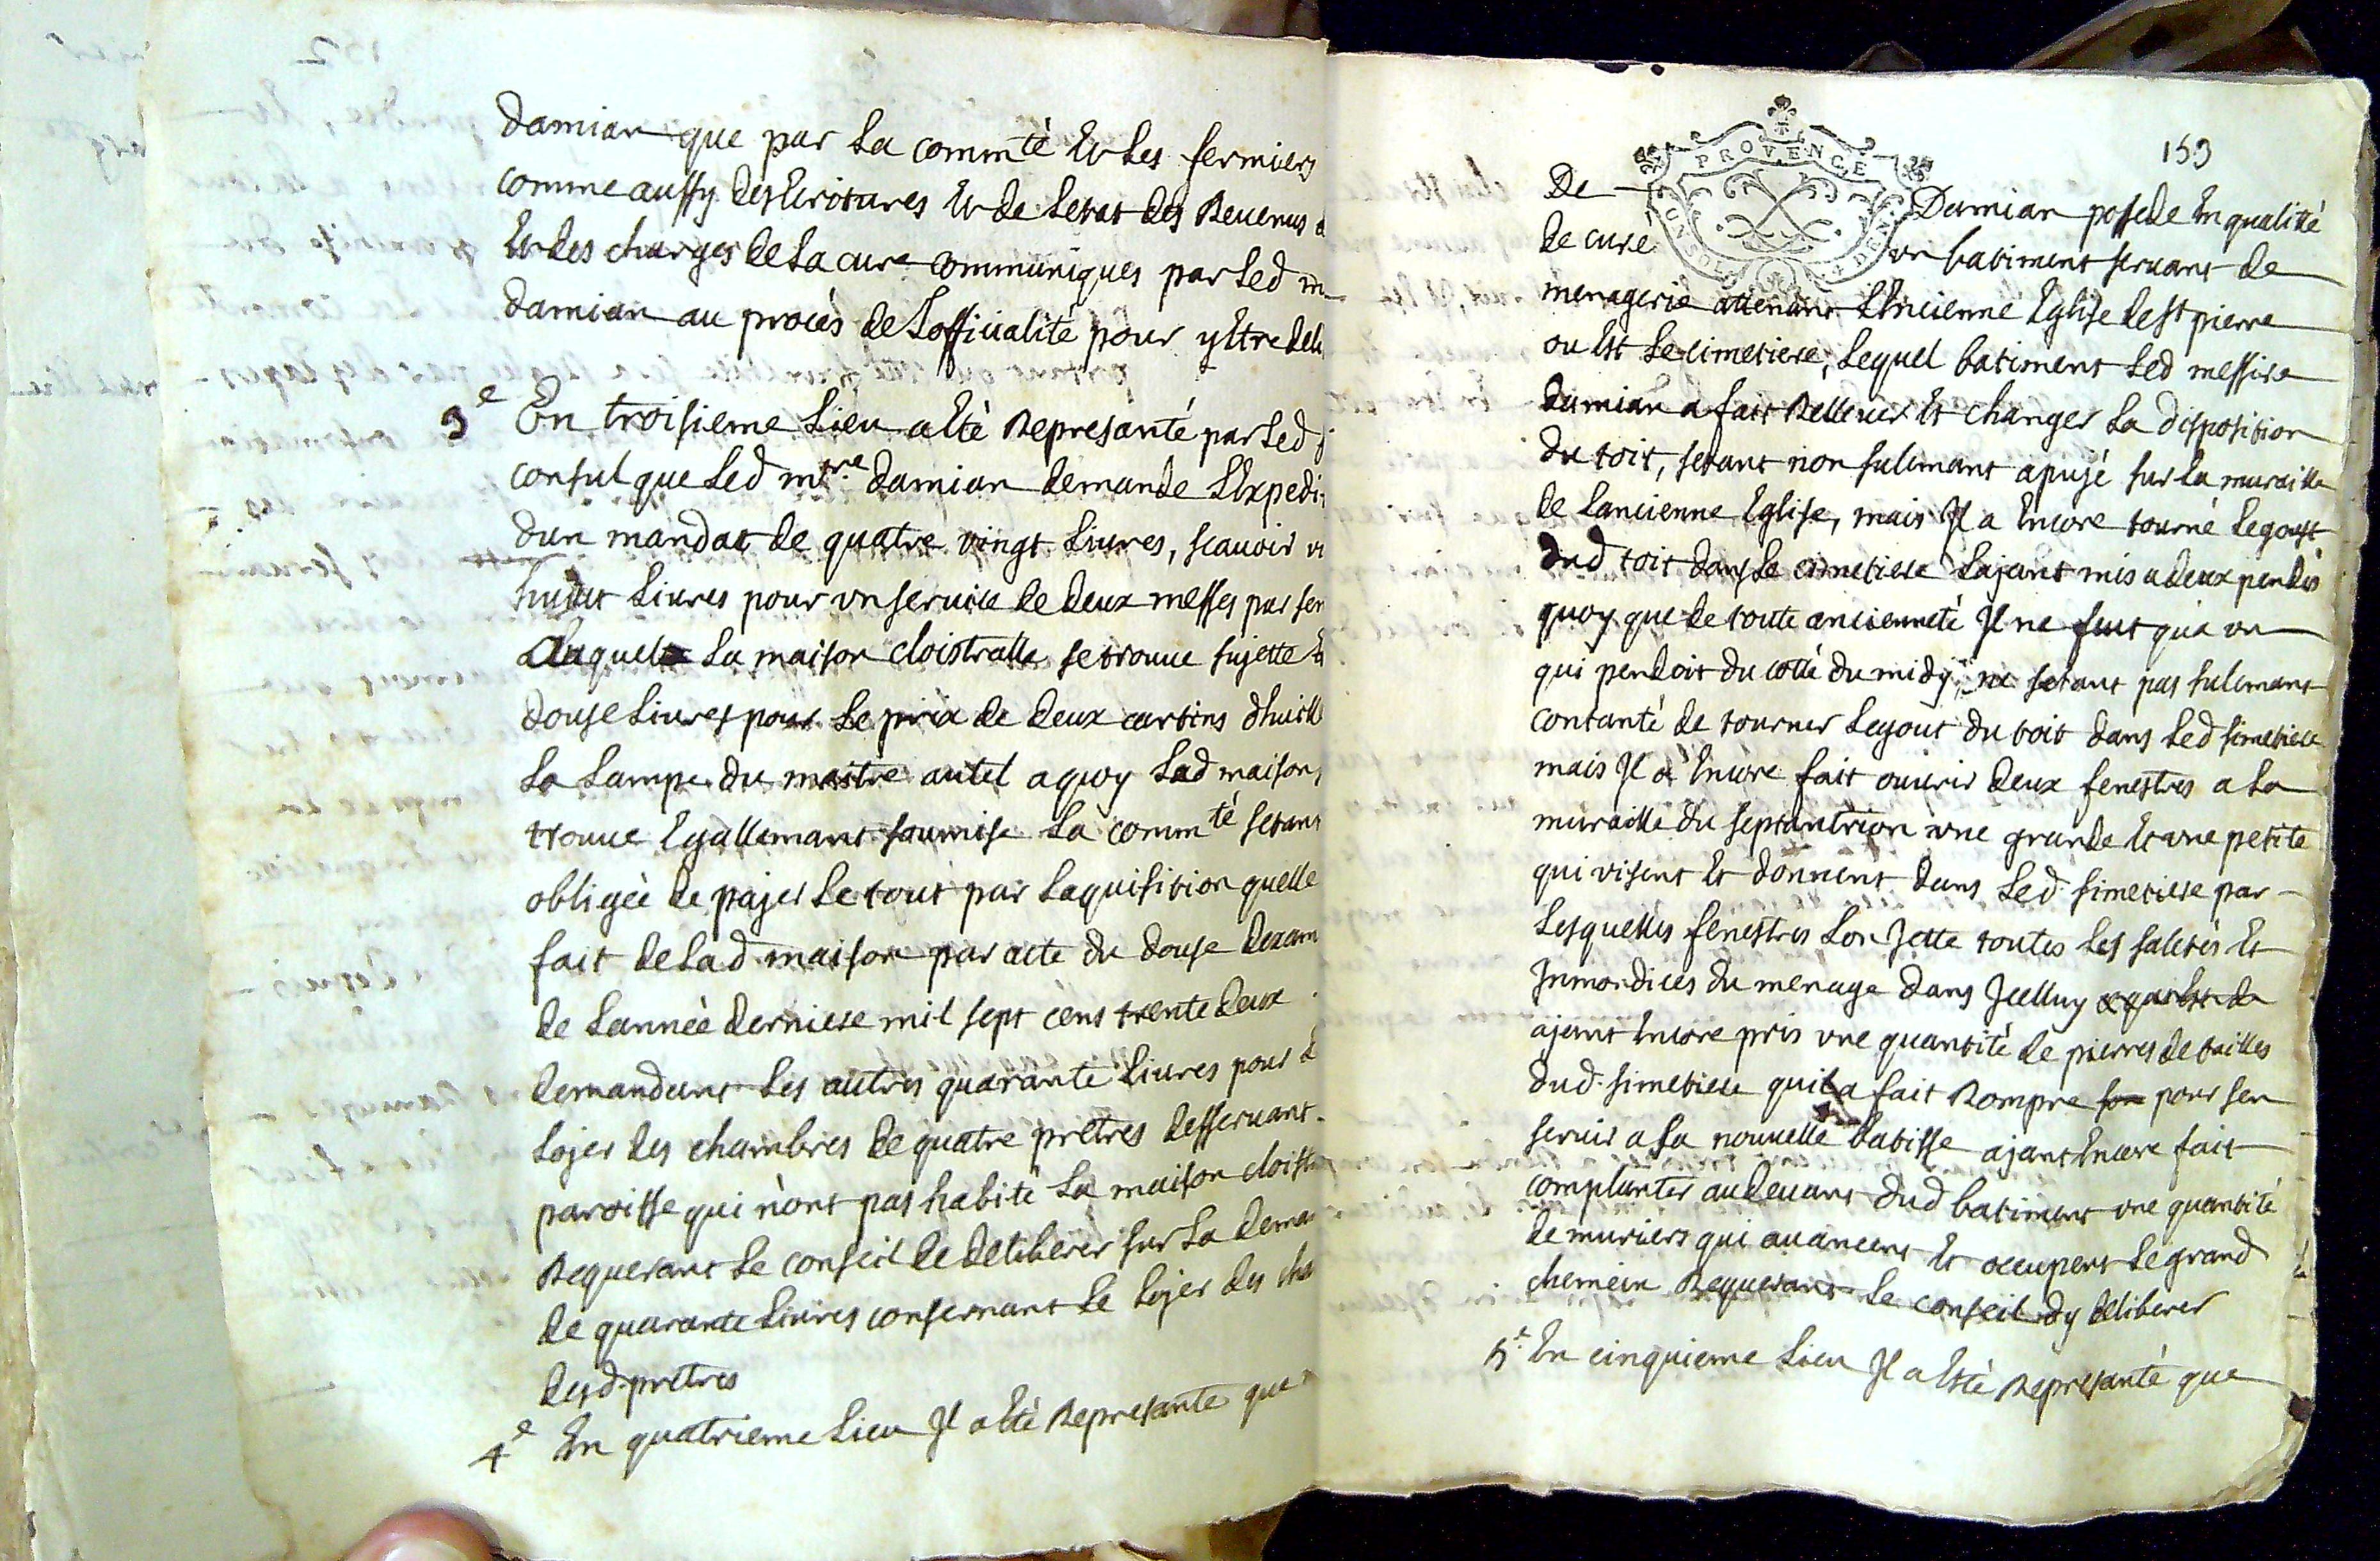 damian que par la commté et les fermiers
comme aussy des ecritures et de letat des Revenus
et des charges de la cure communiqués par led m
damian au procés de Lofficialité pour y etre
3e En troisieme lieu a eté Represanté par led
consul que led mtre damian demande lexpedi
dun mandat de quatre vingt livres, scavoir
huict livres pour un service de deux messes par
a laquele la maison cloistralle se trouve sujette
douse livres pour le prix de deux cartins dhuille
la lampe du maitre autel a quoy lad maison
trouve egallemant soumise la commté setant
obligéé de payer le tout par laquisition quelle
fait de lad maison par acte du douse
de lannéé derniere mil sept cens trente deux
demandant les autres quarante livres pour
loyer des chambres de quatre prétres desservant
paroisse qui nont pas habité la maison
Requerant le conseil de deliberer sur la
de quarante livres consernant le loyer des
desd. pretres
4e En quatrieme lieu Jl a eté Represanté que
153
PROVENCE
De Damian possede en qualitté
de curé un batiment servant de
menagerie attenant lencienne Eglise de st pierre
ou est le cimetiere, lequel batiment led messire
damian a fait Rellever et changer la disposition
du toit, setant non sulemant apuyé sur la muraille
de lancienne Eglise, mais Jl a encore tourné legoust
dud toit dans le cimetiere layant mis a deux pendés
quoy que de toute encienneté Jl ne fut qua un
qui pendoit du cotté du midy, ne setant pas sulemant
contanté de tourner legout du toit dans led simetiere
mais Jl a encore fait ouvrir deux fenestres a la
muraille du septantrion une grande et une petite
qui visent et donnent dans led. simetiere par
lesquelles fenestres lon Jette toutes les saletés et
Jnmondices du menage dans Jcelluy
ayant encore pris une quantité de pierres de tailles
dud. simetiere quil a fait Rompre pour sen
servir a sa nouvelle batisse ayant encore fait
complanter audevant dud batiment une quantité
de muriers qui avancent et occupent le grand
chemein Requerant le conseil dy deliberer
5e. En cinquieme lieu Jl a esté Represanté que